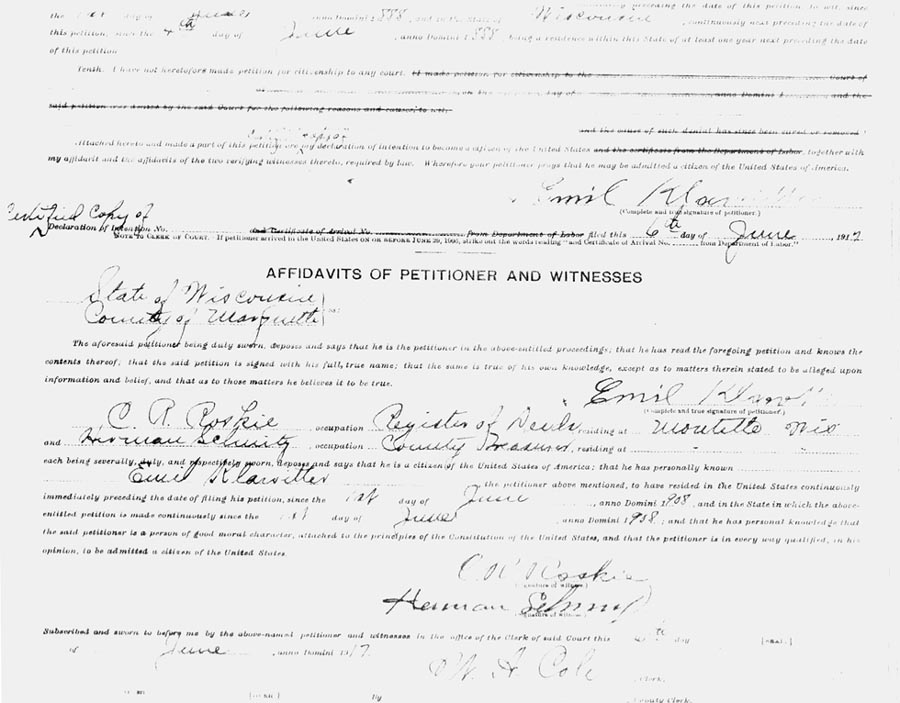 preceding the date of this petition, to wit, since
the 1st day of June, anno Domini 1888, and in the State of Wisconsin, continuously next preceding the date of
this petition, since the 4th day of June, anno Domini 1888, being a residence within this State of at least one year next preceding the date
of this petition
Tenth. I have not heretofore made petition for citizenship to any court. (I made petition for citizenship to the Court of
on the day of, anno Domini, and the
said petition was denied by the said Court for the following reasons and causes, to wit,
and the cause of such denial has since been cured or removed.)
copy of
Attached hereto and made a part of this petition are my declaration of intention to become a citizen of the United States and the certificate from the Department of Labor, together with
my affidavit and the affidavits of the two verifying witnesses thereto, required by law. Wherefore your petitioner prays that he may be admitted a citizen of the United States of America.
Emil
(Complete and true signature of petitioner.)
Certified Copy of
Declaration of Intention No. and Certificate of Arrival No. from Department of Labor filed this 6th day of June, 1917
NOTE TO CLERK OF COURT. If petitioner arrived in the United States ON OR BEFORE JUNE 29, 1906, strike out the words reading "and Certificate of Arrival No. from Department of Labor."
AFFIDAVITS OF PETITIONER AND WITNESSES
State of Wisconsin
County of Marquette ss:
The aforesaid petitioner being duly sworn, deposes and says that he is the petitioner in the above-entitled proceedings; that he has read the foregoing petition and knows the
contents thereof; that the said petition is signed with his full, true name; that the same is true of his own knowledge, except as to matters therein stated to be alleged upon
information and belief, and that as to those matters he believes it to be true.
Emil
(Complete and true signature of petitioner.)
C. R. Roskie, occupation Register of Deeds, residing at Montello Wis
and Herman Schmitz, occupation County Treasurer, residing at " "
each being severally, duly, and respectively sworn, deposes and says that he is a citizen of the United States of America; that he has personally known
Emil Klawitter, the petitioner above mentioned, to have resided in the United States continuously
immediately preceding the date of filing his petition, since the 1st day of June, anno Domini 1908, and in the State in which the above-
entitled petition is made continuously since the 1st day of June, anno Domini 1908; and that he has personal knowledge that
the said petitioner is a person of good moral character, attached to the principles of the Constitution of the United States, and that the petitioner is in every way qualified, in his
opinion, to be admitted a citizen of the United States.
C R Roskie
(Signature of witness.)
Herman Schmitz
(Signature of witness.)
Subscribed and sworn to before me by the above-named petitioner and witnesses in the office of the Clerk of said Court this 6th day [SEAL.]
of June, anno Domini 1917.
W. A. Cole, Clerk.
By Deputy Clerk.